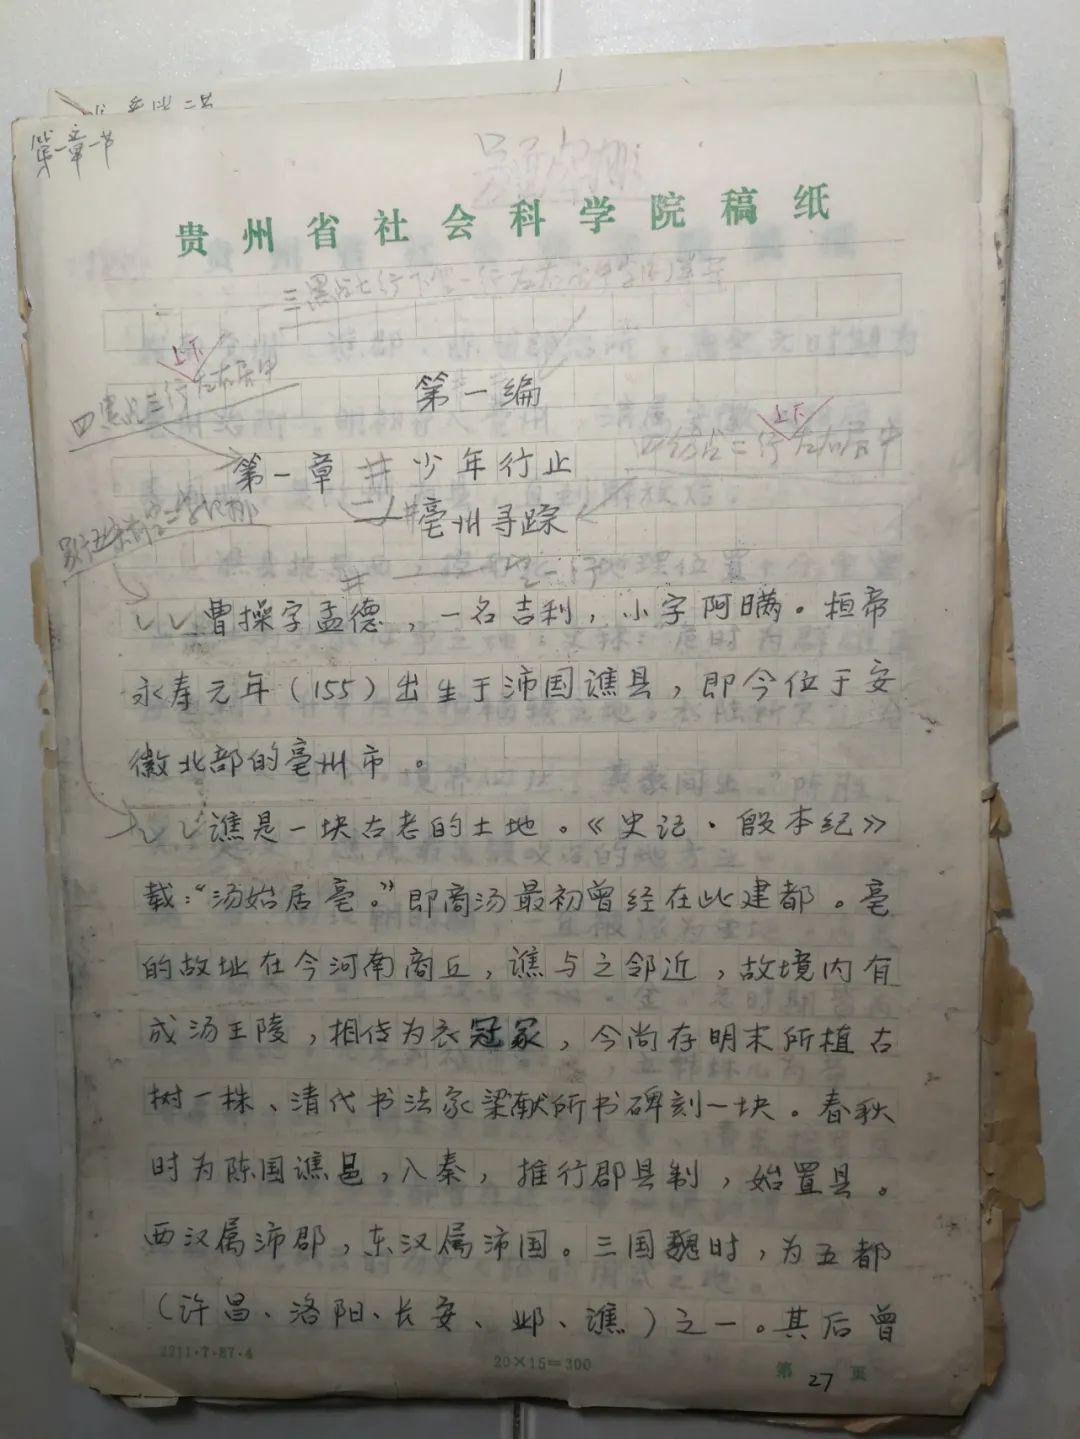 第一章一节
贵州省社会科学院稿纸
三黑占七行
四黑占三行左右居中
上下
第一编
四仿占二行左右居中
上下
第一章 少年行止
一、亳州寻踪
空一行
曹操字孟德，一名吉利，小字阿瞒。桓帝
永寿元年（155）出生于沛国谯县，即今位于安
徽北部的亳州市。
谯是一块古老的土地。《史记·殷本纪》
载：“汤始居亳。”即商汤最初曾经在此建都。亳
的故址在今河南商丘，谯与之邻近，故境内有
成汤王陵，相传为衣冠冢，今尚存明末所植古
树一株、清代书法家梁献所书碑刻一块。春秋
时为陈国谯邑，入秦，推行郡县制，始置县。
西汉属沛郡，东汉属沛国。三国魏时，为五都
（许昌、洛阳、长安、邺、谯）之一。其后曾
2211·7·87·4
20×15=300
第27页